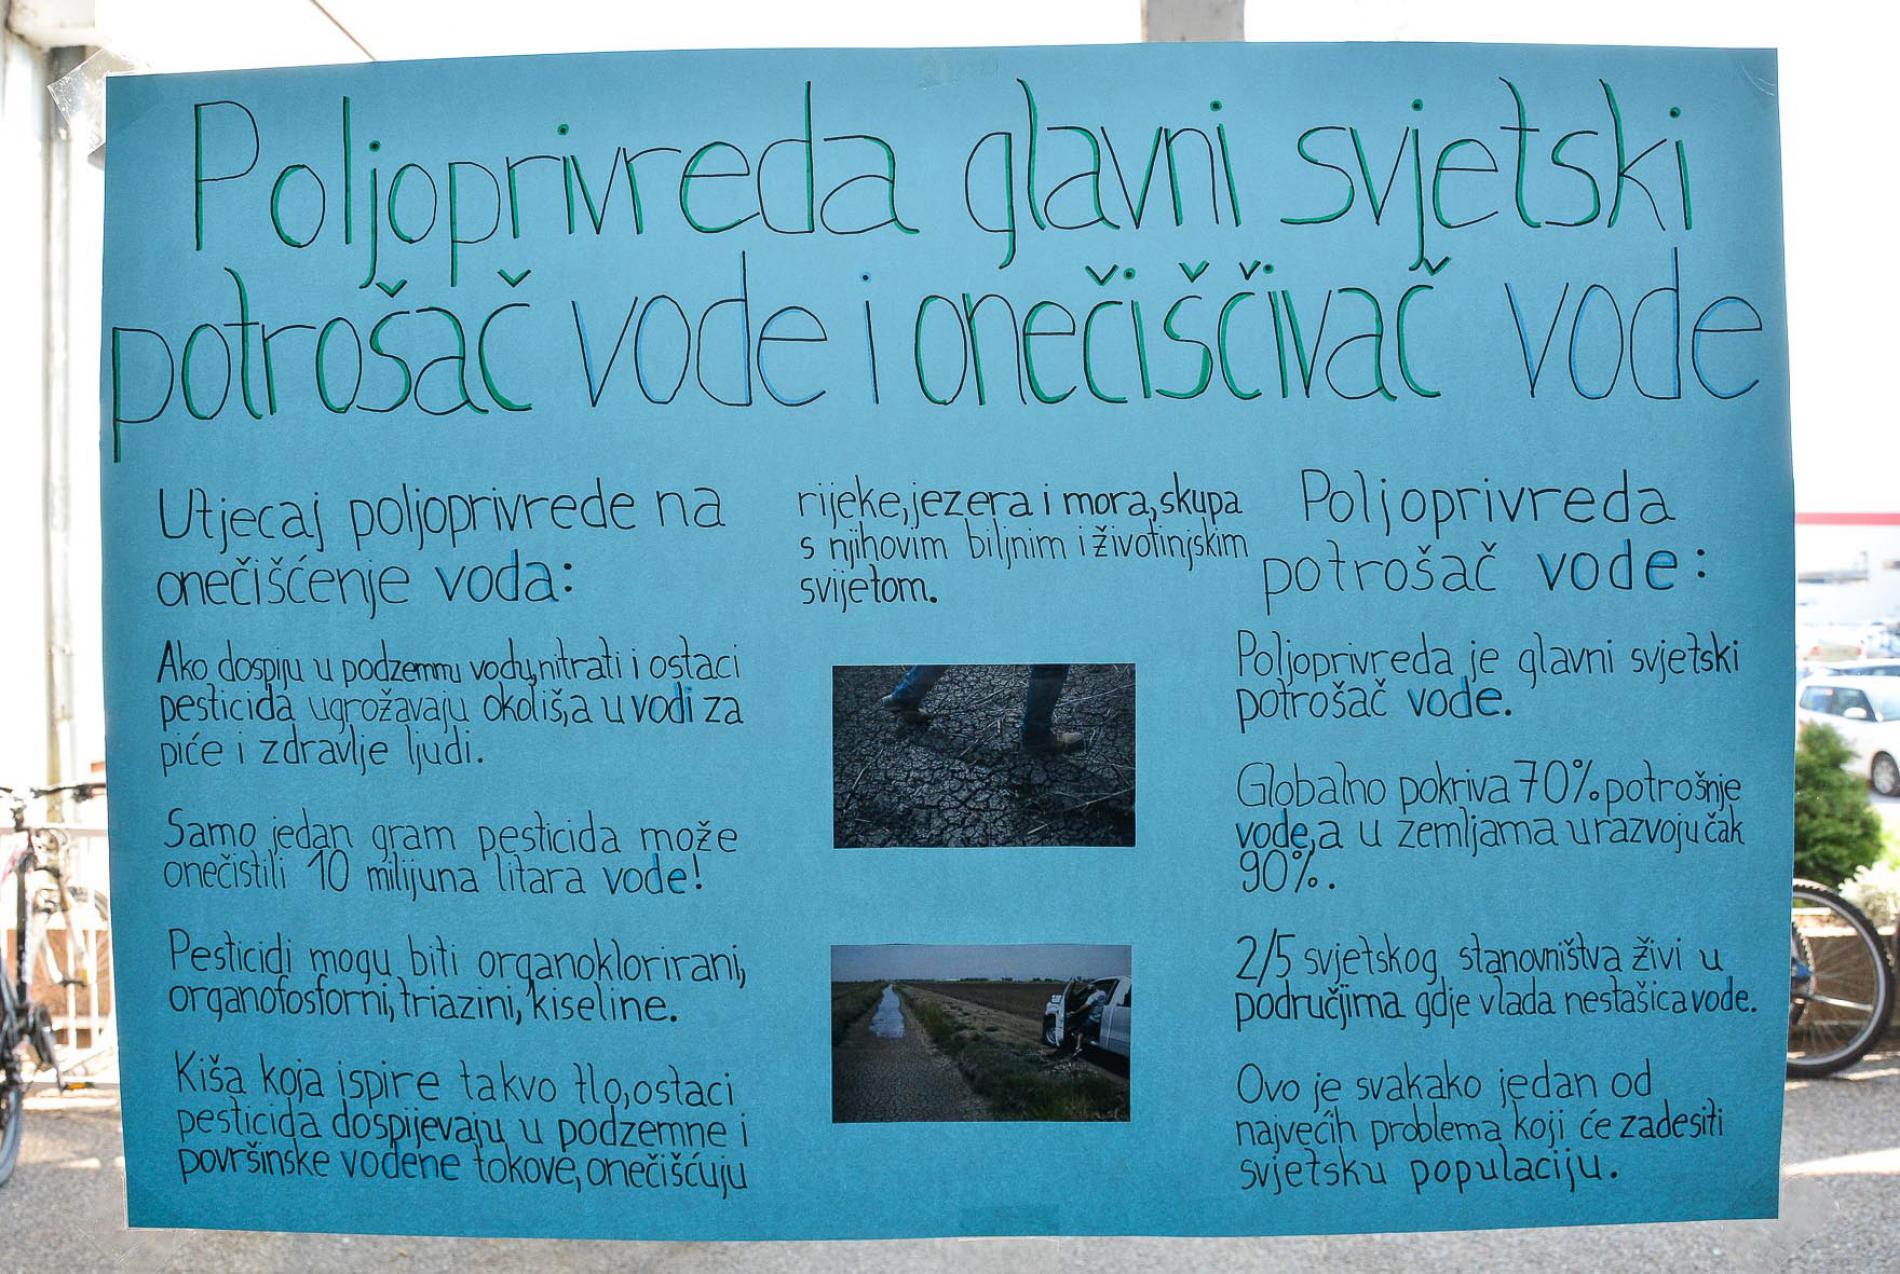 Poljoprivreda glavni svjetski
potrošač vode i onečiščivač vode
Utjecaj poljoprivrede na
onečišćenje voda:
Ako dospiju u podzemnu vodu,nitrati i ostaci
pesticida ugrožavaju okoliš,a u vodi za
piće i zdravlje ljudi.
Samo jedan gram pesticida može
onečistili 10 milijuna litara vode!
Pesticidi mogu biti organoklorirani,
organofosforni,triazini,kiseline.
Kiša koja ispire takvo tlo,ostaci
pesticida dospijevaju u podzemne i
površinske vodene tokove,onečišćuju
rijeke,jezera i mora,skupa
s njihovim biljnim i životinjskim
svijetom.
Poljoprivreda
potrošač vode:
Poljoprivreda je glavni svjetski
potrošač vode.
Globalno pokriva 70% potrošnje
vode,a u zemljama u razvoju čak
90%.
2/5 svjetskog stanovništva živi u
područjima gdje vlada nestašica vode.
Ovo je svakako jedan od
najvećih problema koji će zadesiti
svjetsku populaciju.